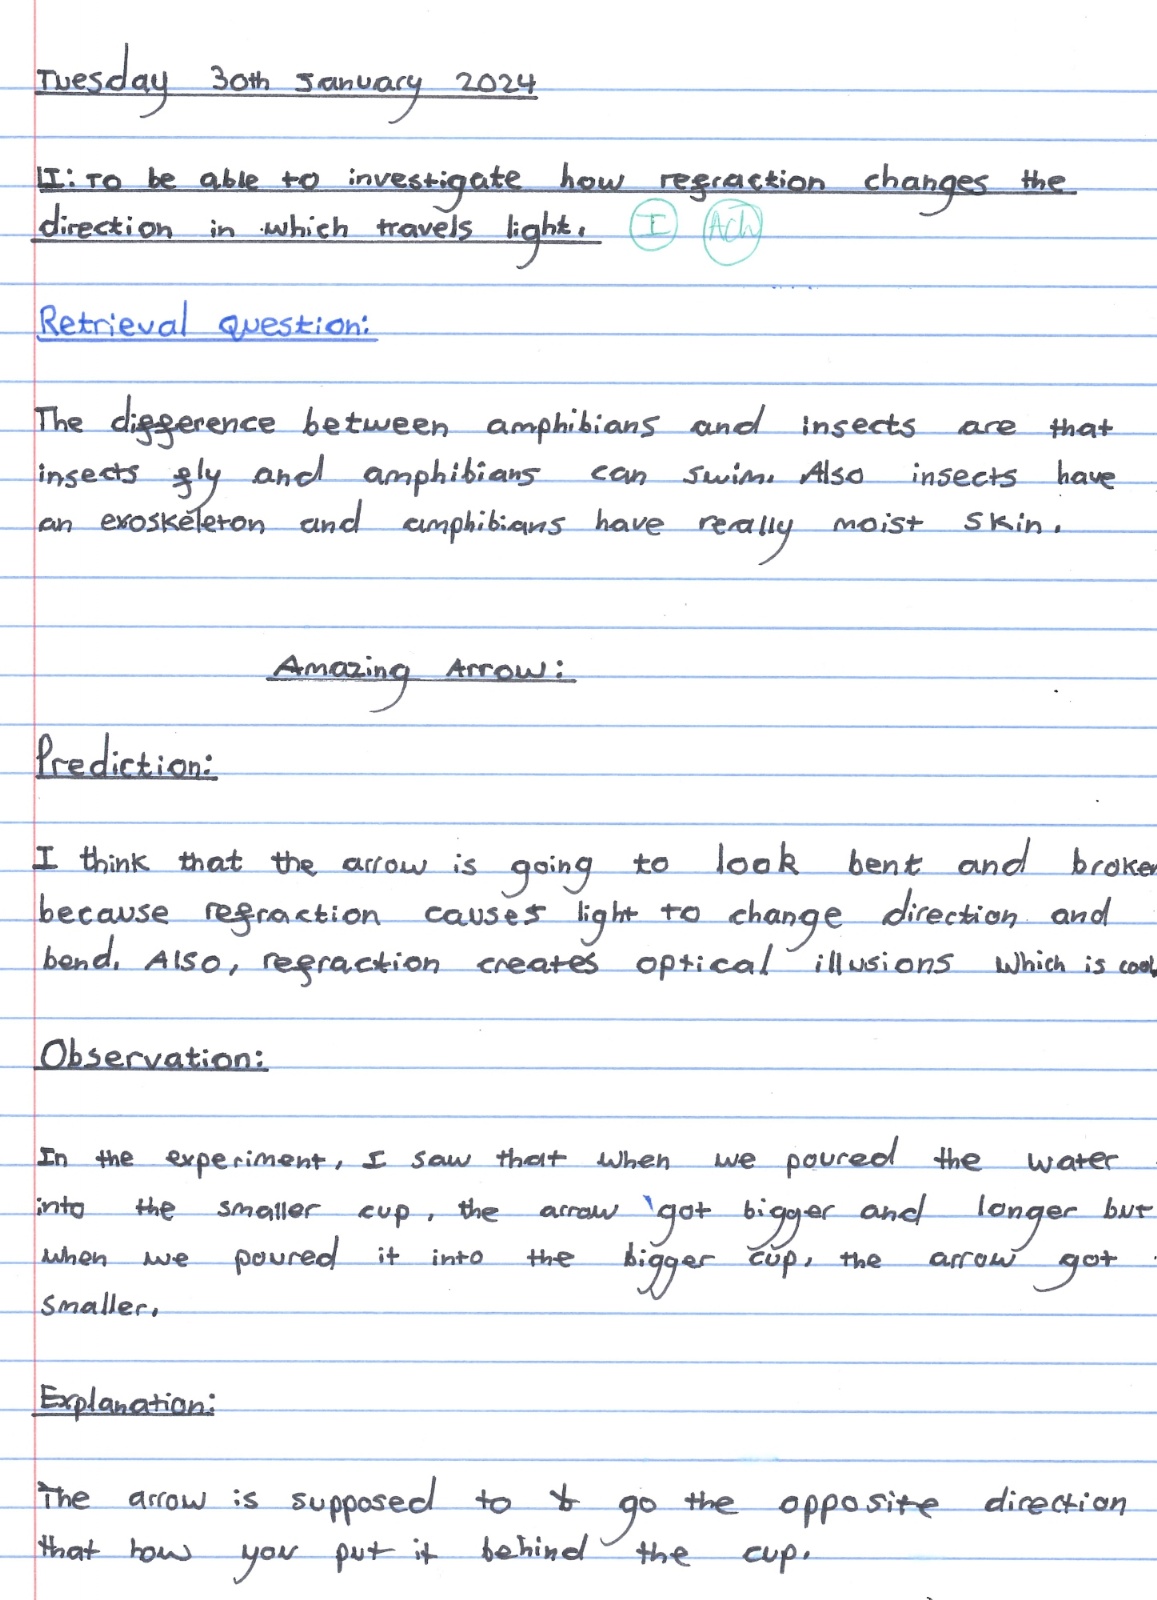 Tuesday 30th January 2024
LI: To be able to investigate how refraction changes the
direction in which travels light. I Ach
Retrieval question:
The difference between amphibians and insects are that
insects fly and amphibians can swim. Also insects have
an exoskeleton and amphibians have really moist skin.
Amazing Arrow:
Prediction:
I think that the arrow is going to look bent and broken
because refraction causes light to change direction and
bend. Also, refraction creates optical illusions which is cool
Observation:
In the experiment, I saw that when we poured the water
into the smaller cup, the arrow got bigger and longer but
when we poured it into the bigger cup, the arrow got
smaller.
Explanation:
The arrow is supposed to go the opposite direction
that how you put it behind the cup.